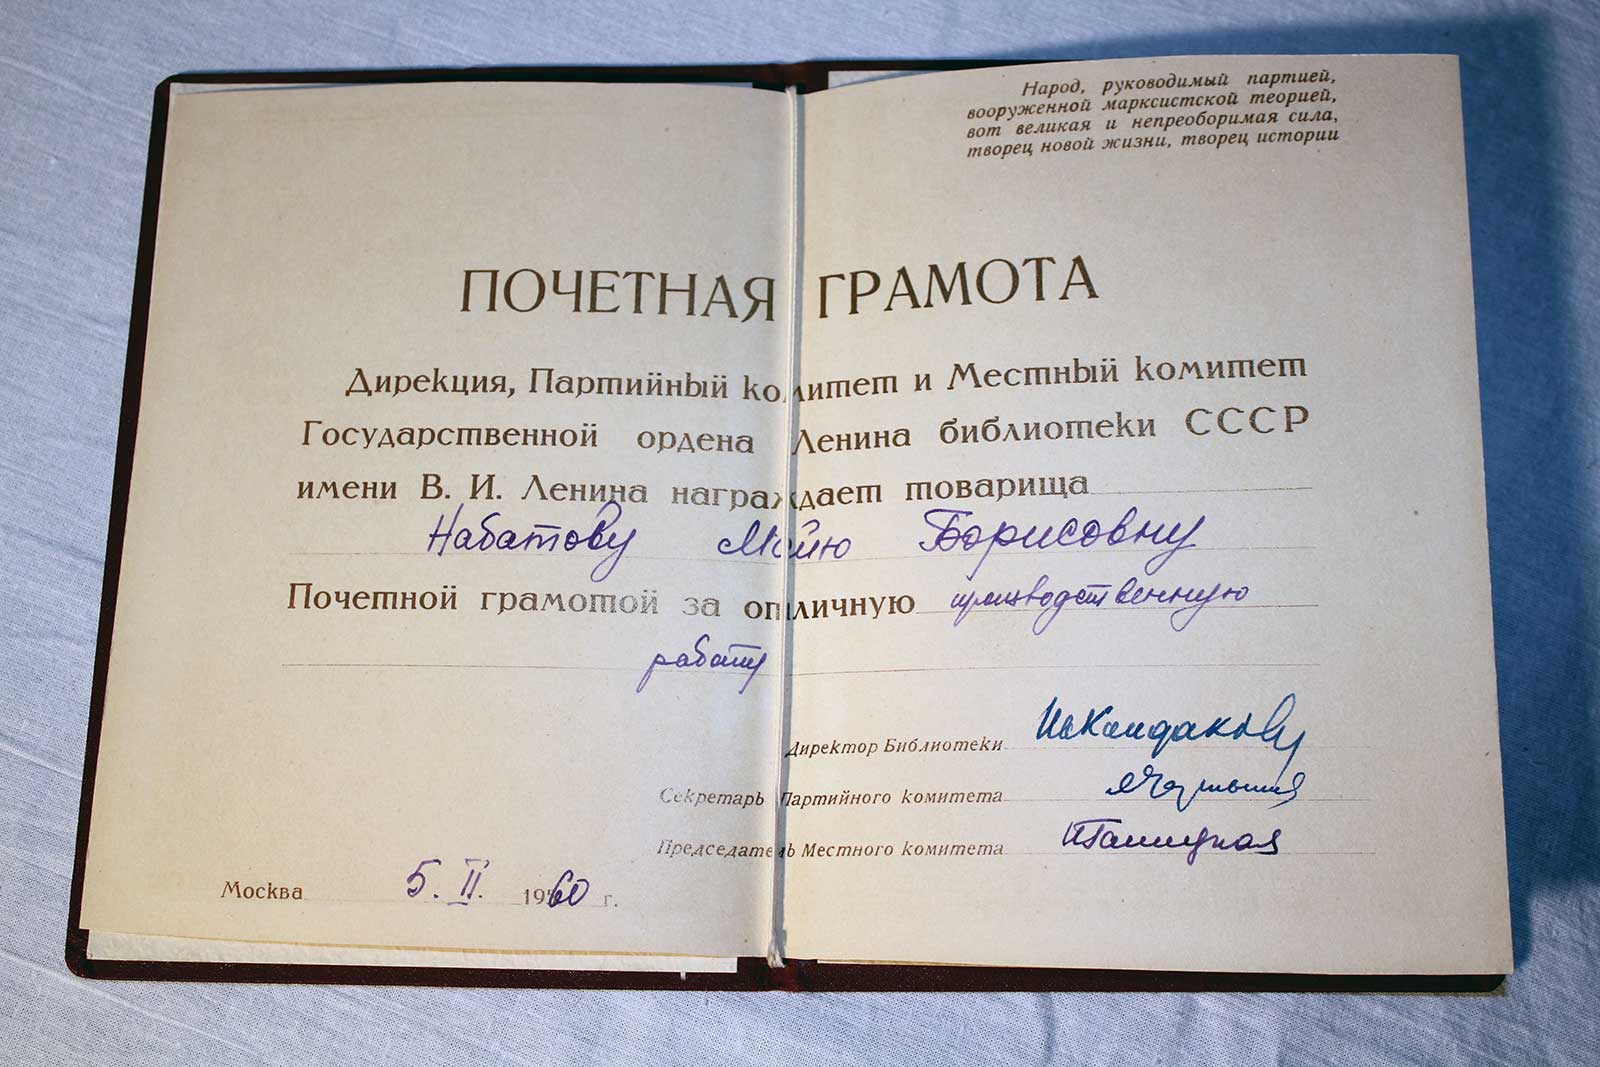 Народ, руководимый партией,
вооруженной марксистской теорией,
вот великая и непреоборимая сила,
творец новой жизни, творец истории
ПОЧЕТНАЯ ГРАМОТА
Дирекция, Партийный комитет и Местный комитет
Государственной ордена Ленина библиотеки СССР
имени В. И. Ленина награждает товарища
Набатову Майю Борисовну
Почетной грамотой за отличную производственную
работу
Директор Библиотеки
Секретарь Партийного комитета
Председатель Местного комитета
Москва 5. II. 1960 г.